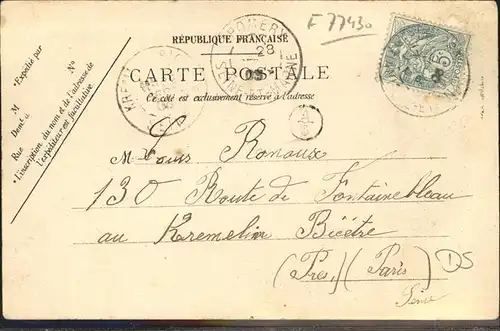 F 77430
RÉPUBLIQUE FRANÇAISE
CARTE POSTALE
Ce côté est exclusivement réservé à l'adresse
• Expédié par
N°
M
Demt à
Rue
• L'inscription du nom et de l'adresse de l'expéditeur est facultative
28
SEINE-ET-MARNE
KREM
A
M. Louis Ronoux
130 Route de Fontainebleau
au Kremelin Bicêtre
(Près) (Paris)
Seine
DS